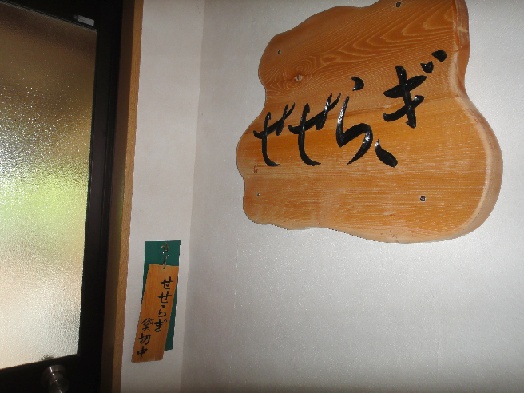 せせらぎ
せせらぎ
貸切中